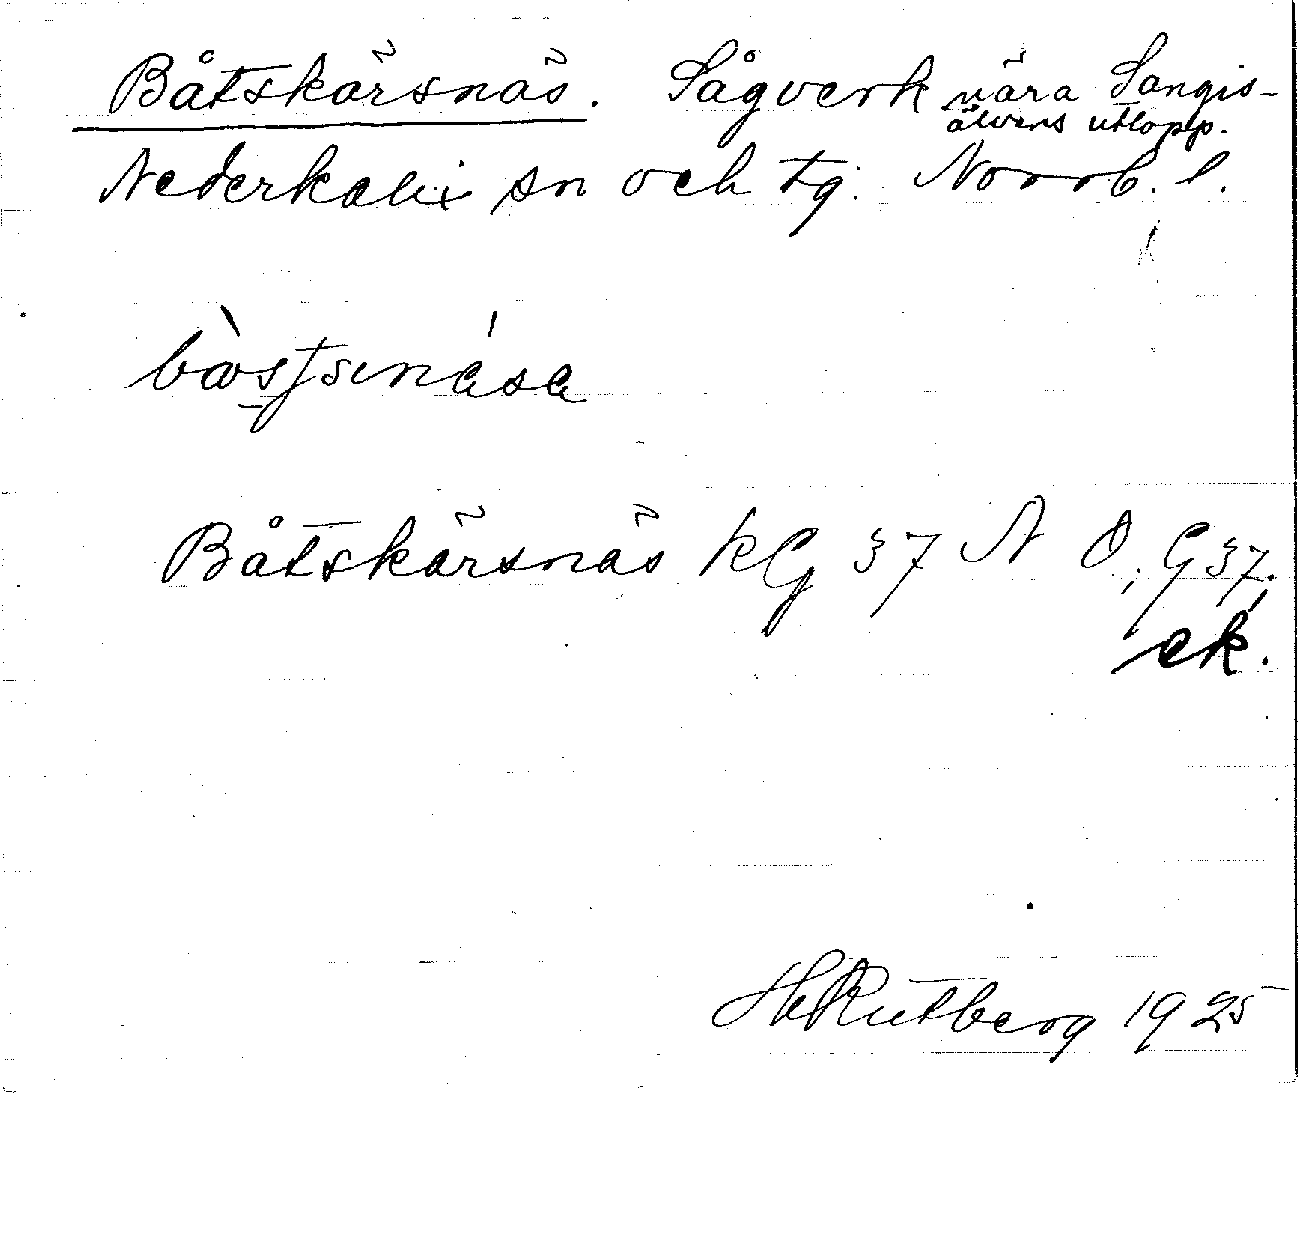 Båtskärsnäs. Sågverk nära Sangis-
älvens utlopp.
Nederkalix sn och tg. Norrb. l.
Båtskärsnäs kG 37 N O; G 37.
ek.
H Rutberg 1925